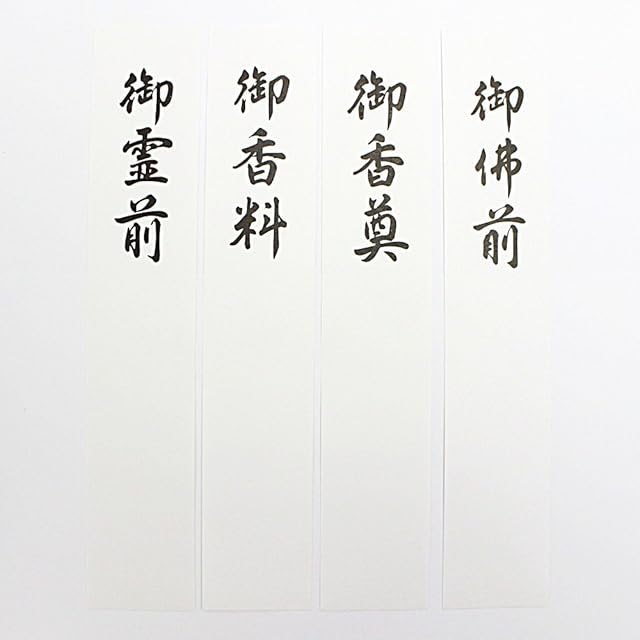 御霊前
御香料
御香奠
御佛前